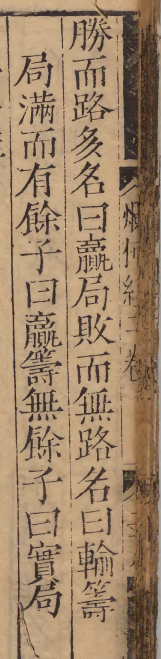 勝而路多名曰贏局敗而無路名曰輸籌
局滿而有餘子曰贏籌無餘子曰實局